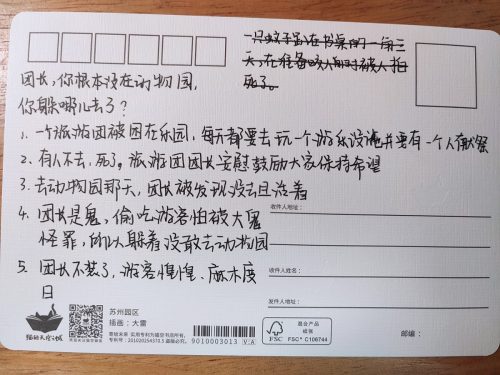 一只蚊子困在书桌的一角三
天，在准备咬人时被人拍
死了。
团长，你根本没在动物园，
你躲哪儿去了？
1. 一个旅游团被困在乐园，每天都要去玩一个游乐设施并要有一个人献祭
2. 有人不去，死了。旅游团团长安慰鼓励大家保持希望
3. 去动物园那天，团长被发现没去且活着
4. 团长是鬼，偷吃游客怕被大鬼
怪罪，所以躲着没敢去动物园
5. 团长不装了，游客惶惶、麻木度
日
收件人地址：
收件人姓名：
发件人地址：
邮编：
猫的天空之城
苏州园区
插画：大雷
9010003013 V-A
FSC
混合产品
纸张
FSC® C106744